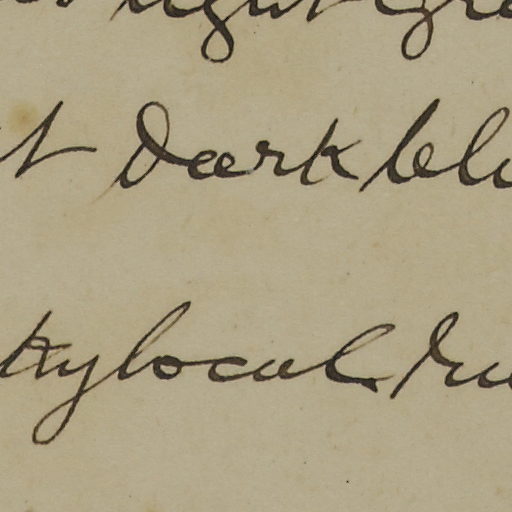 light gre
t Dark blu
ky local